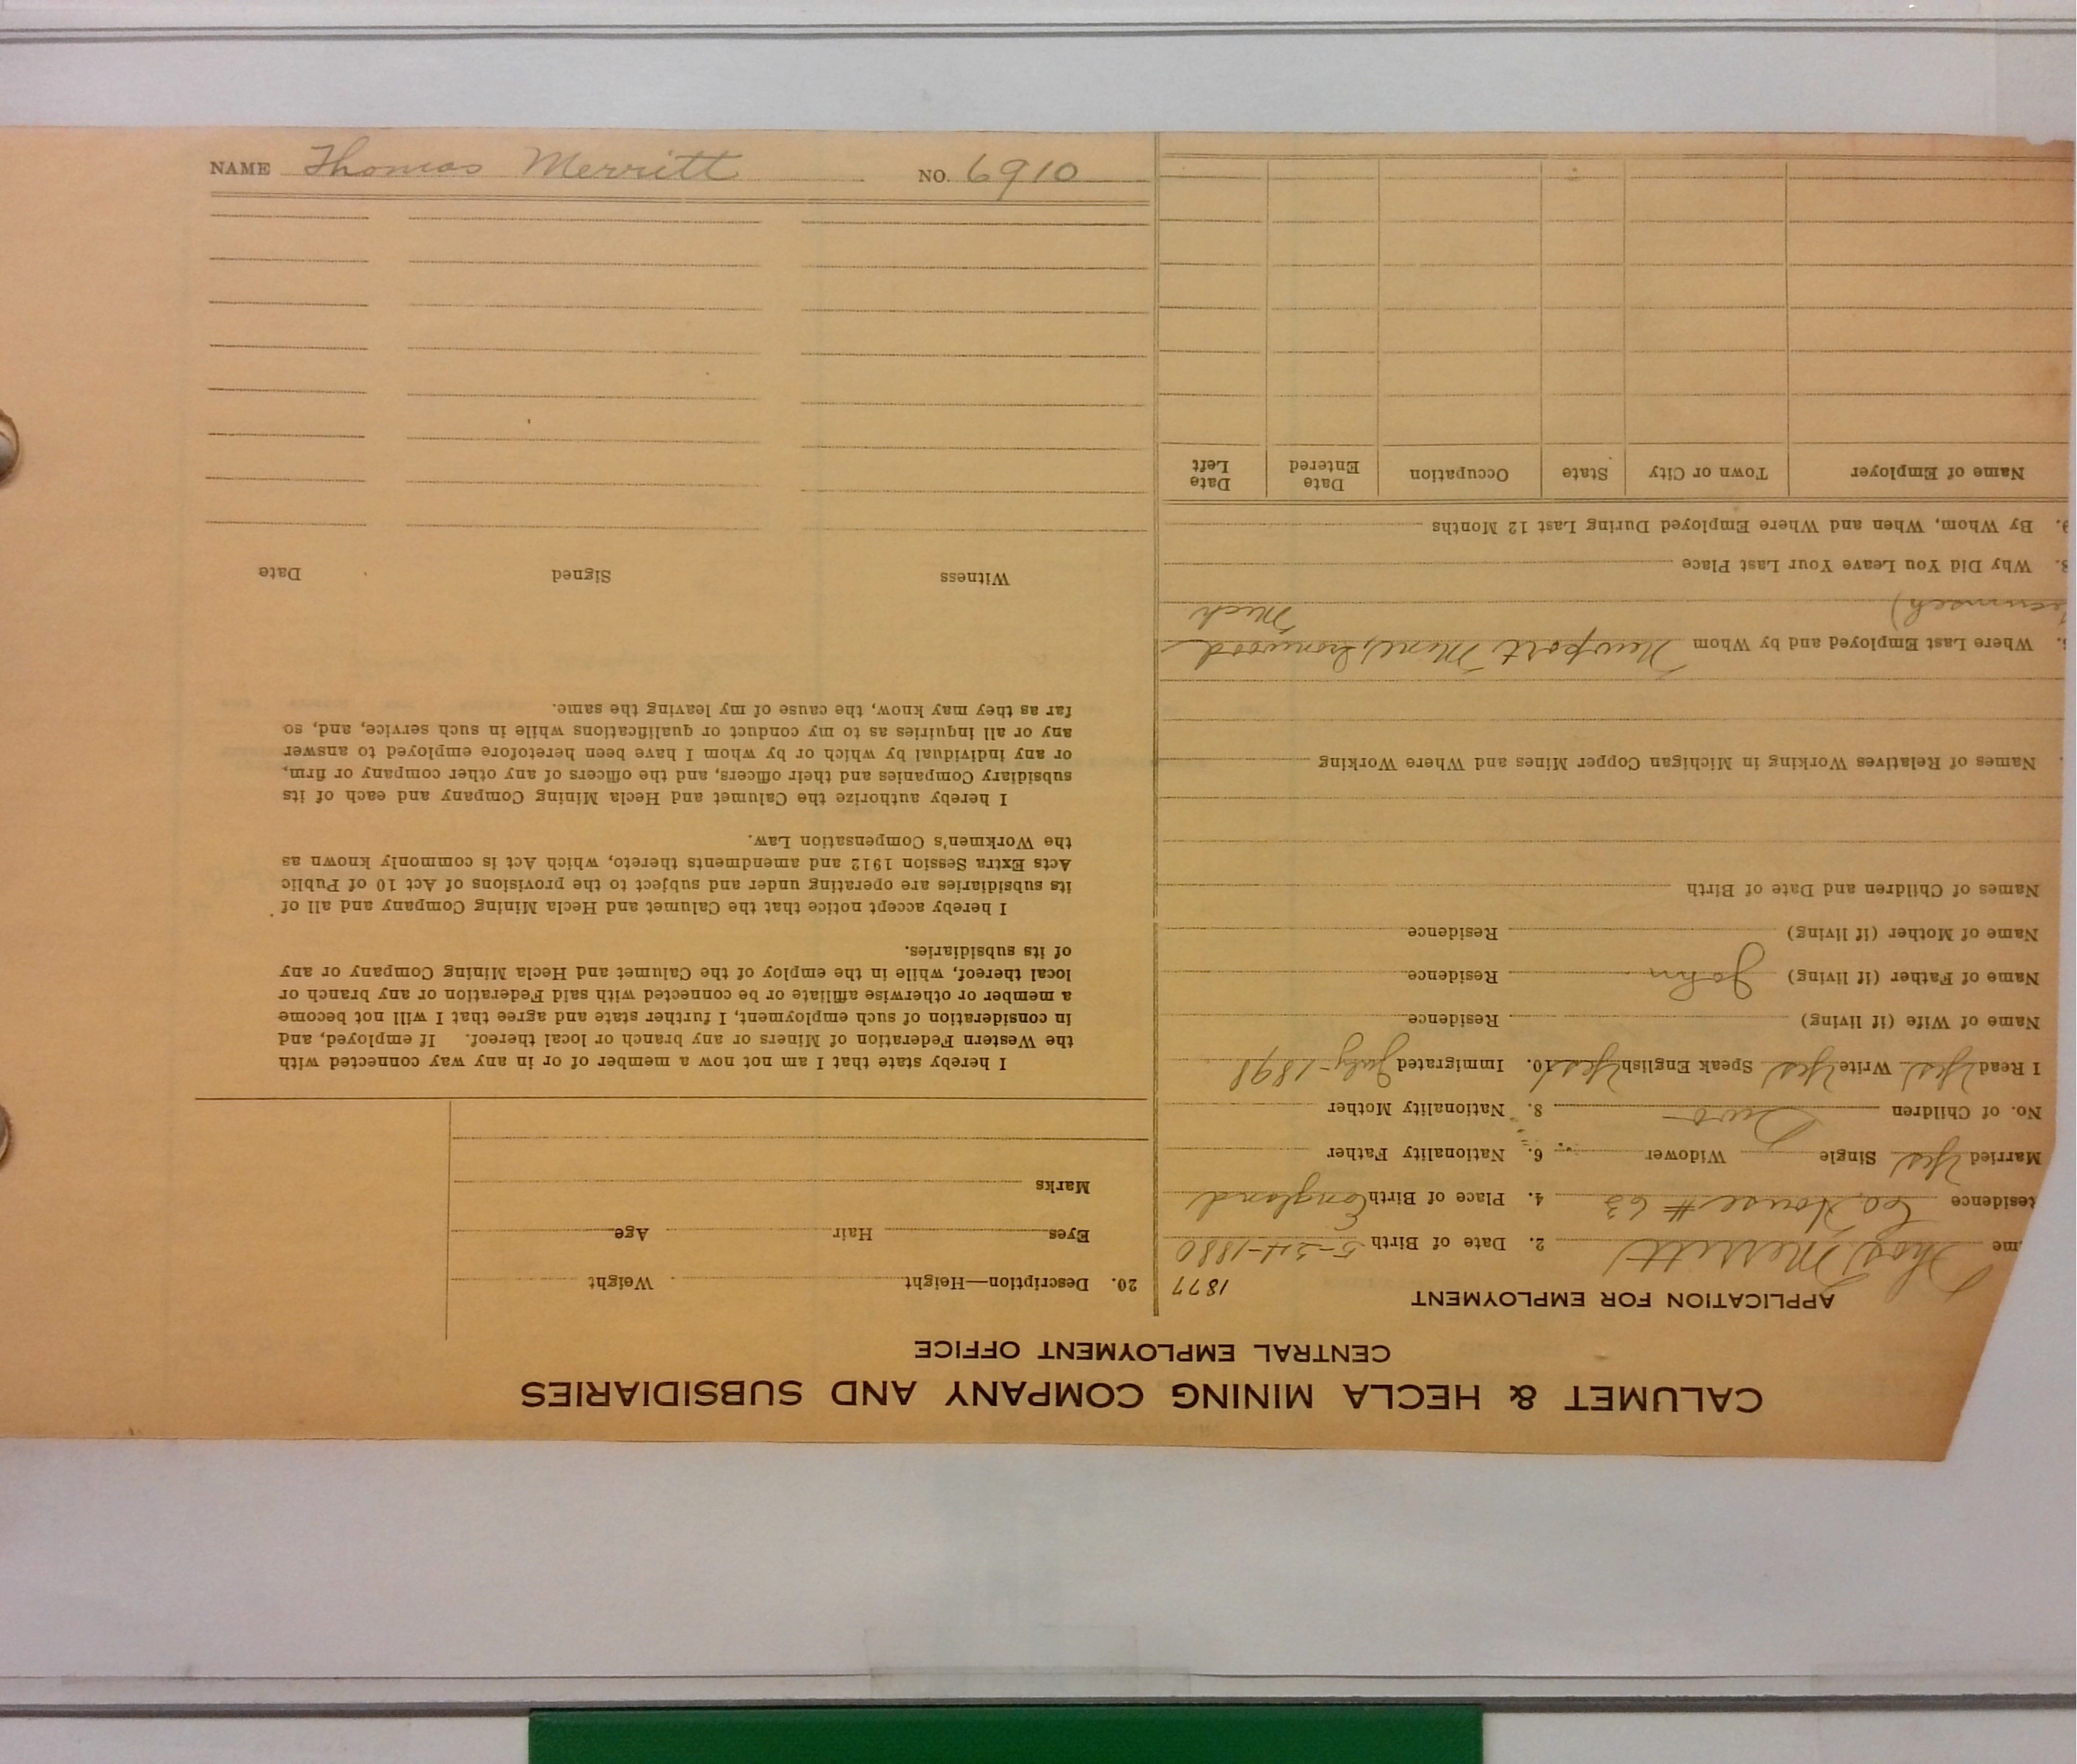 NAME Thomas Merritt NO. 6910
CALUMET & HECLA MINING COMPANY AND SUBSIDIARIES
CENTRAL EMPLOYMENT OFFICE
APPLICATION FOR EMPLOYMENT
1877
me Thos Merritt 2. Date of Birth 5-24-1880
esidence Co. House # 63 4. Place of Birth England
Married Yes Single Widower 6. Nationality Father
No. of Children Two 8. Nationality Mother
I Read Yes Write Yes Speak English Yes 10. Immigrated July-1898
Name of Wife (if living) Residence
Name of Father (if living) John Residence
Name of Mother (if living) Residence
Names of Children and Date of Birth
. Names of Relatives Working in Michigan Copper Mines and Where Working
. Where Last Employed and by Whom Newport Mine, Ironwood
Mich
. Why Did You Leave Your Last Place
9. By Whom, When and Where Employed During Last 12 Months
Name of Employer Town or City State Occupation Date Entered Date Left
20. Description—Height Weight
Eyes Hair Age
Marks
I hereby state that I am not now a member of or in any way connected with
the Western Federation of Miners or any branch or local thereof. If employed, and
in consideration of such employment, I further state and agree that I will not become
a member or otherwise affiliate or be connected with said Federation or any branch or
local thereof, while in the employ of the Calumet and Hecla Mining Company or any
of its subsidiaries.
I hereby accept notice that the Calumet and Hecla Mining Company and all of
its subsidiaries are operating under and subject to the provisions of Act 10 of Public
Acts Extra Session 1912 and amendments thereto, which Act is commonly known as
the Workmen's Compensation Law.
I hereby authorize the Calumet and Hecla Mining Company and each of its
subsidiary Companies and their officers, and the officers of any other company or firm,
or any individual by which or by whom I have been heretofore employed to answer
any or all inquiries as to my conduct or qualifications while in such service, and, so
far as they may know, the cause of my leaving the same.
Witness Signed Date